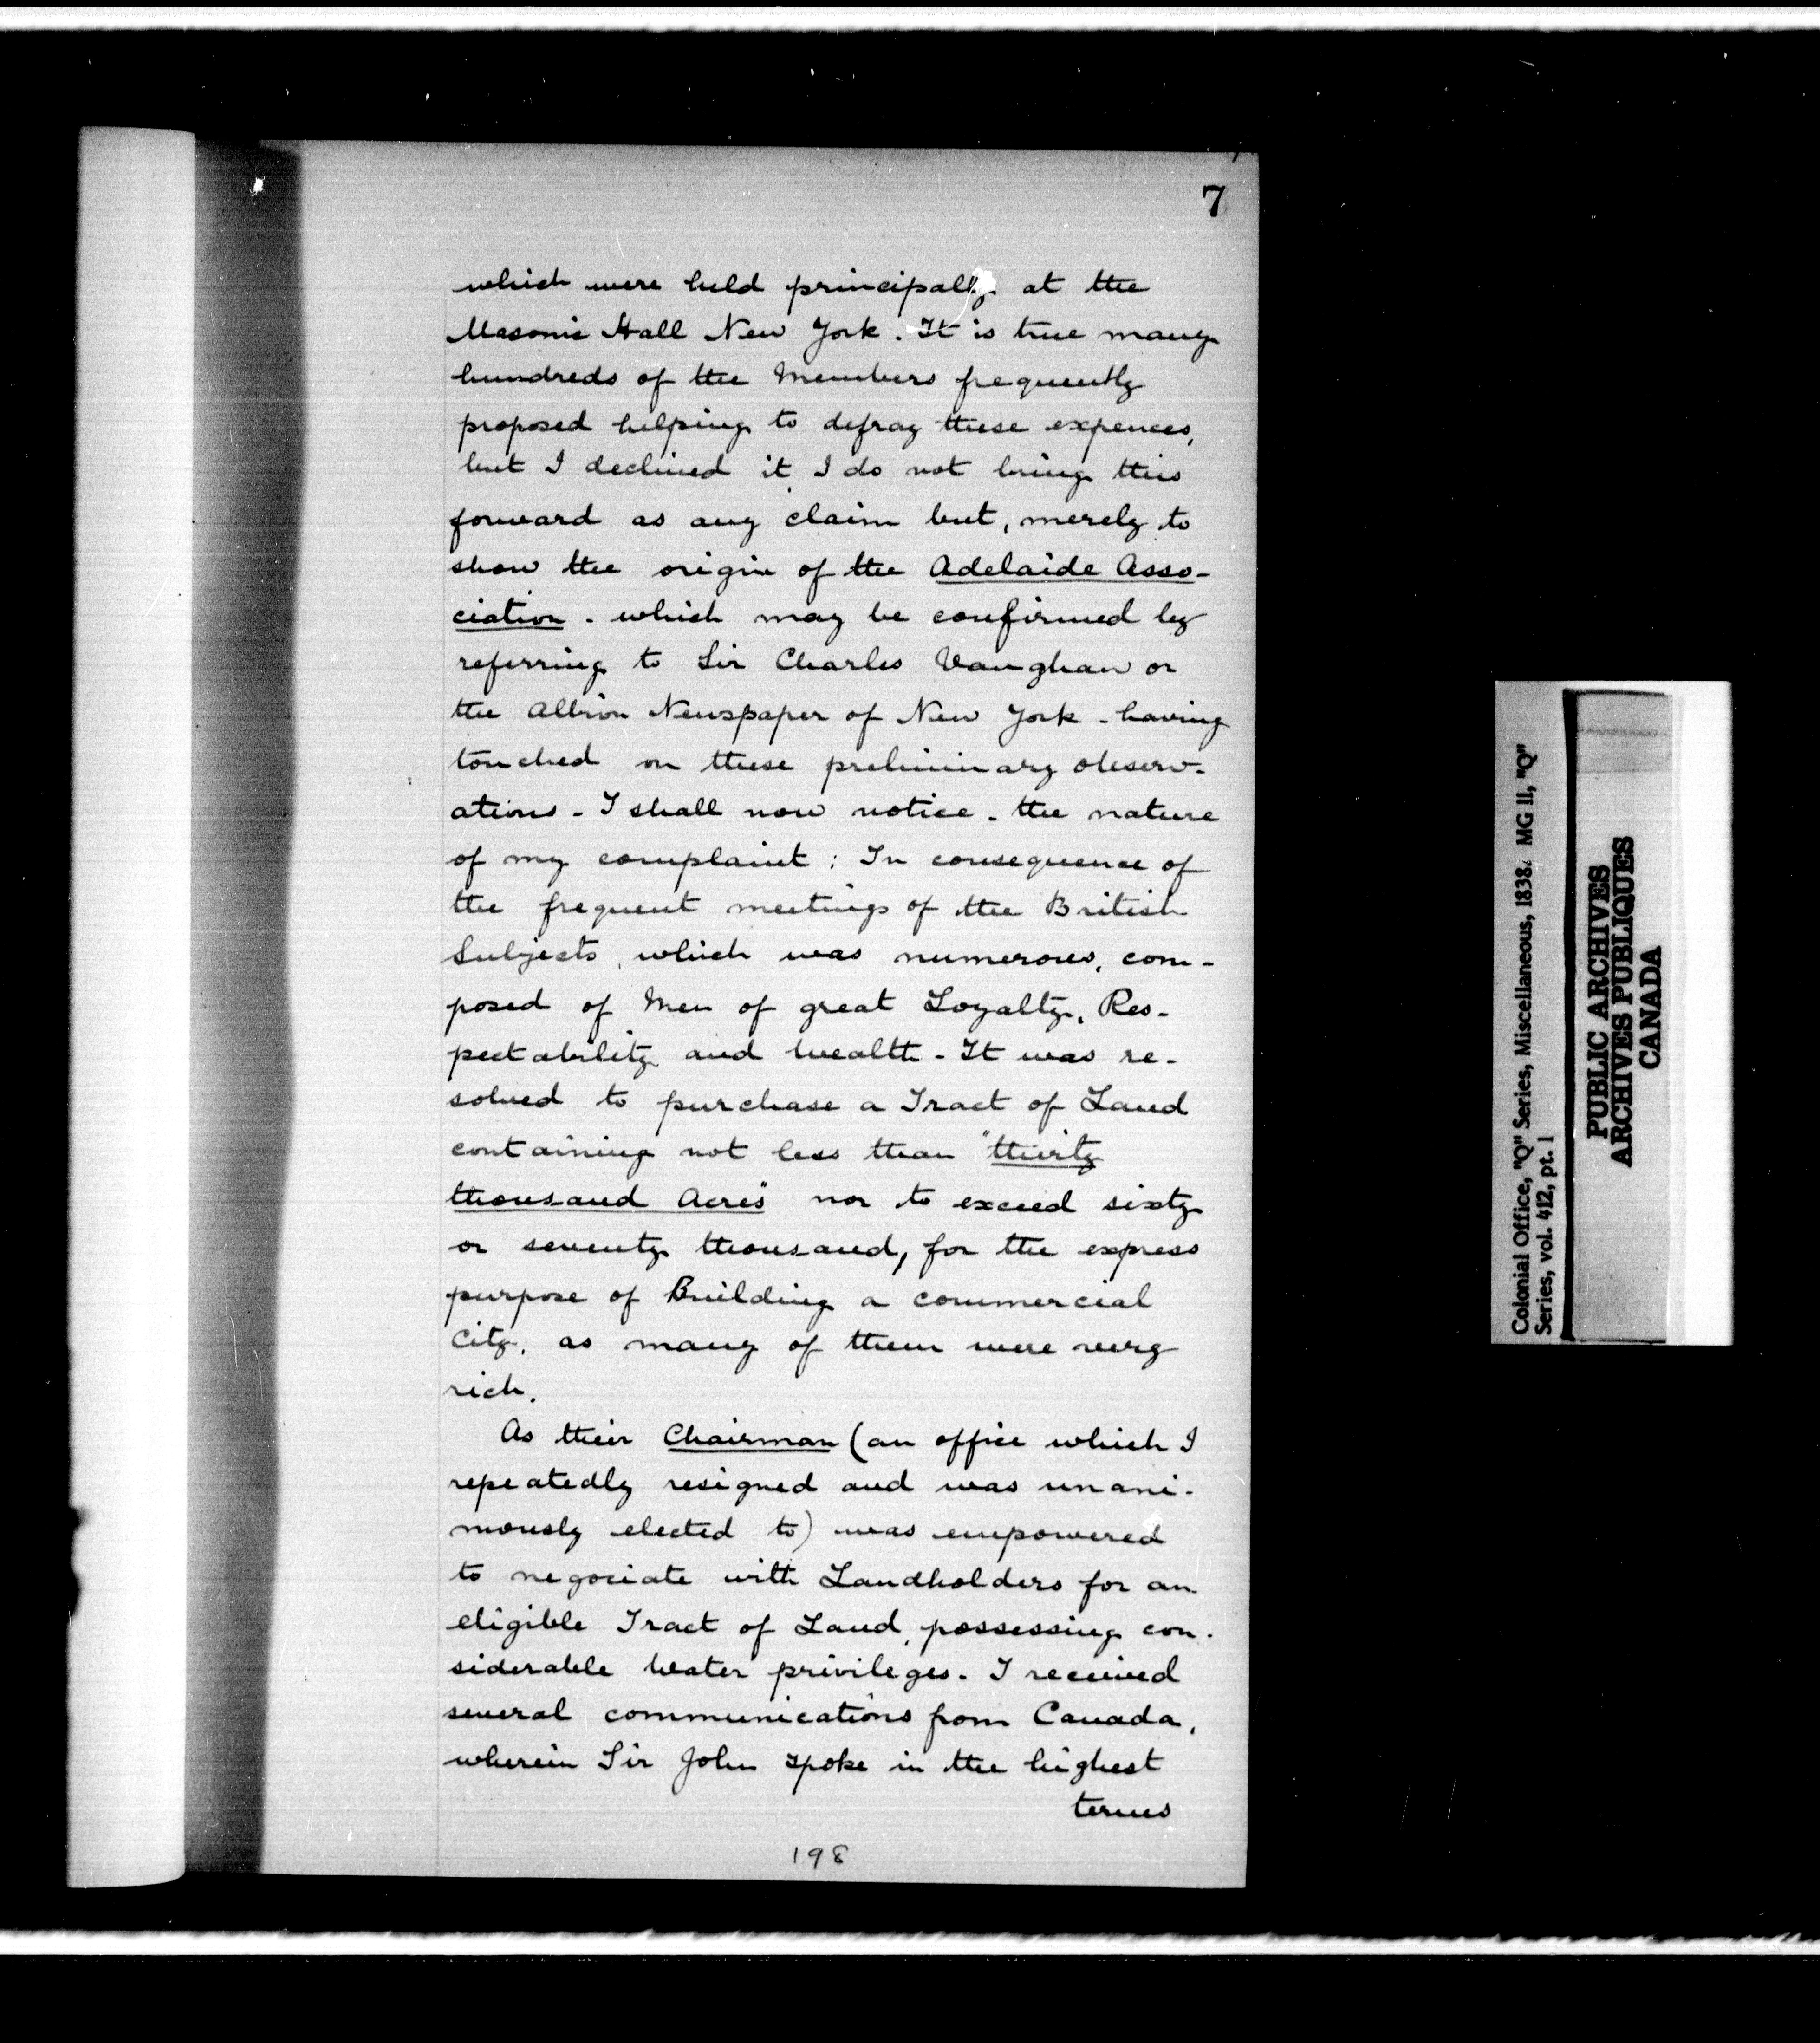 7
which were held principally at the
Masonic Hall New York. It is true many
hundreds of the Members frequently
proposed helping to defray these expences,
but I declined it, I do not bring this
forward as any claim but, merely to
show the origin of the Adelaide Asso-
ciation - which may be confirmed by
referring to Sir Charles Vaughan or
the Albion Newspaper of New York - having
touched on these preliminary observ-
ations - I shall now notice - the nature
of my complaint : In consequence of
the frequent meetings of the British
Subjects, which was numerous, com-
posed of Men of great Loyalty, Res-
pectability and Wealth - It was re-
solved to purchase a Tract of Land
containing not less than "thirty
thousand Acres" nor to exceed sixty
or seventy thousand, for the express
purpose of Building a commercial
City, as many of them were very
rich.
As their Chairman (an office which I
repeatedly resigned and was unani-
mously elected to) was empowered
to negociate with Landholders for an
eligible Tract of Land, possessing con-
siderable Water privileges. I received
several communications from Canada,
wherein Sir John spoke in the highest
terms
198
Colonial Office, "Q" Series, Miscellaneous, 1838. MG 11, "Q"
Series, vol. 412, pt. 1
PUBLIC ARCHIVES
ARCHIVES PUBLIQUES
CANADA